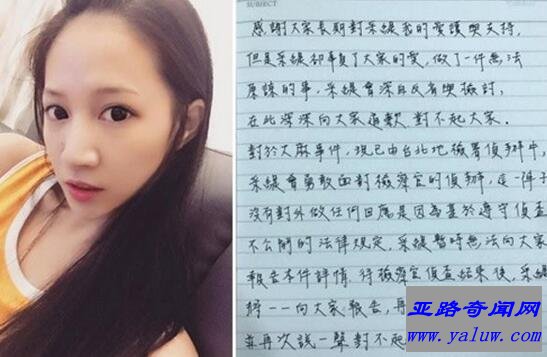 SUBJECT
感謝大家長期對采緹我的愛護與支持,
但是采緹卻辜負了大家的愛, 做了一件無法
原諒的事, 采緹會深自反省與檢討,
在此深深向大家道歉, 對不起大家.
對於大麻事件, 現已由台北地檢署偵辦中,
采緹會勇敢面對檢察官的偵辦, 這一陣子
沒有對外做任何回應是因為基於遵守偵查
不公開的法律規定, 采緹暫時無法向大家
報告本件詳情, 待檢察官偵查結束後, 采緹
一一向大家報告, 再
再次說一聲對不起
亚路奇闻网
www.yaluw.com